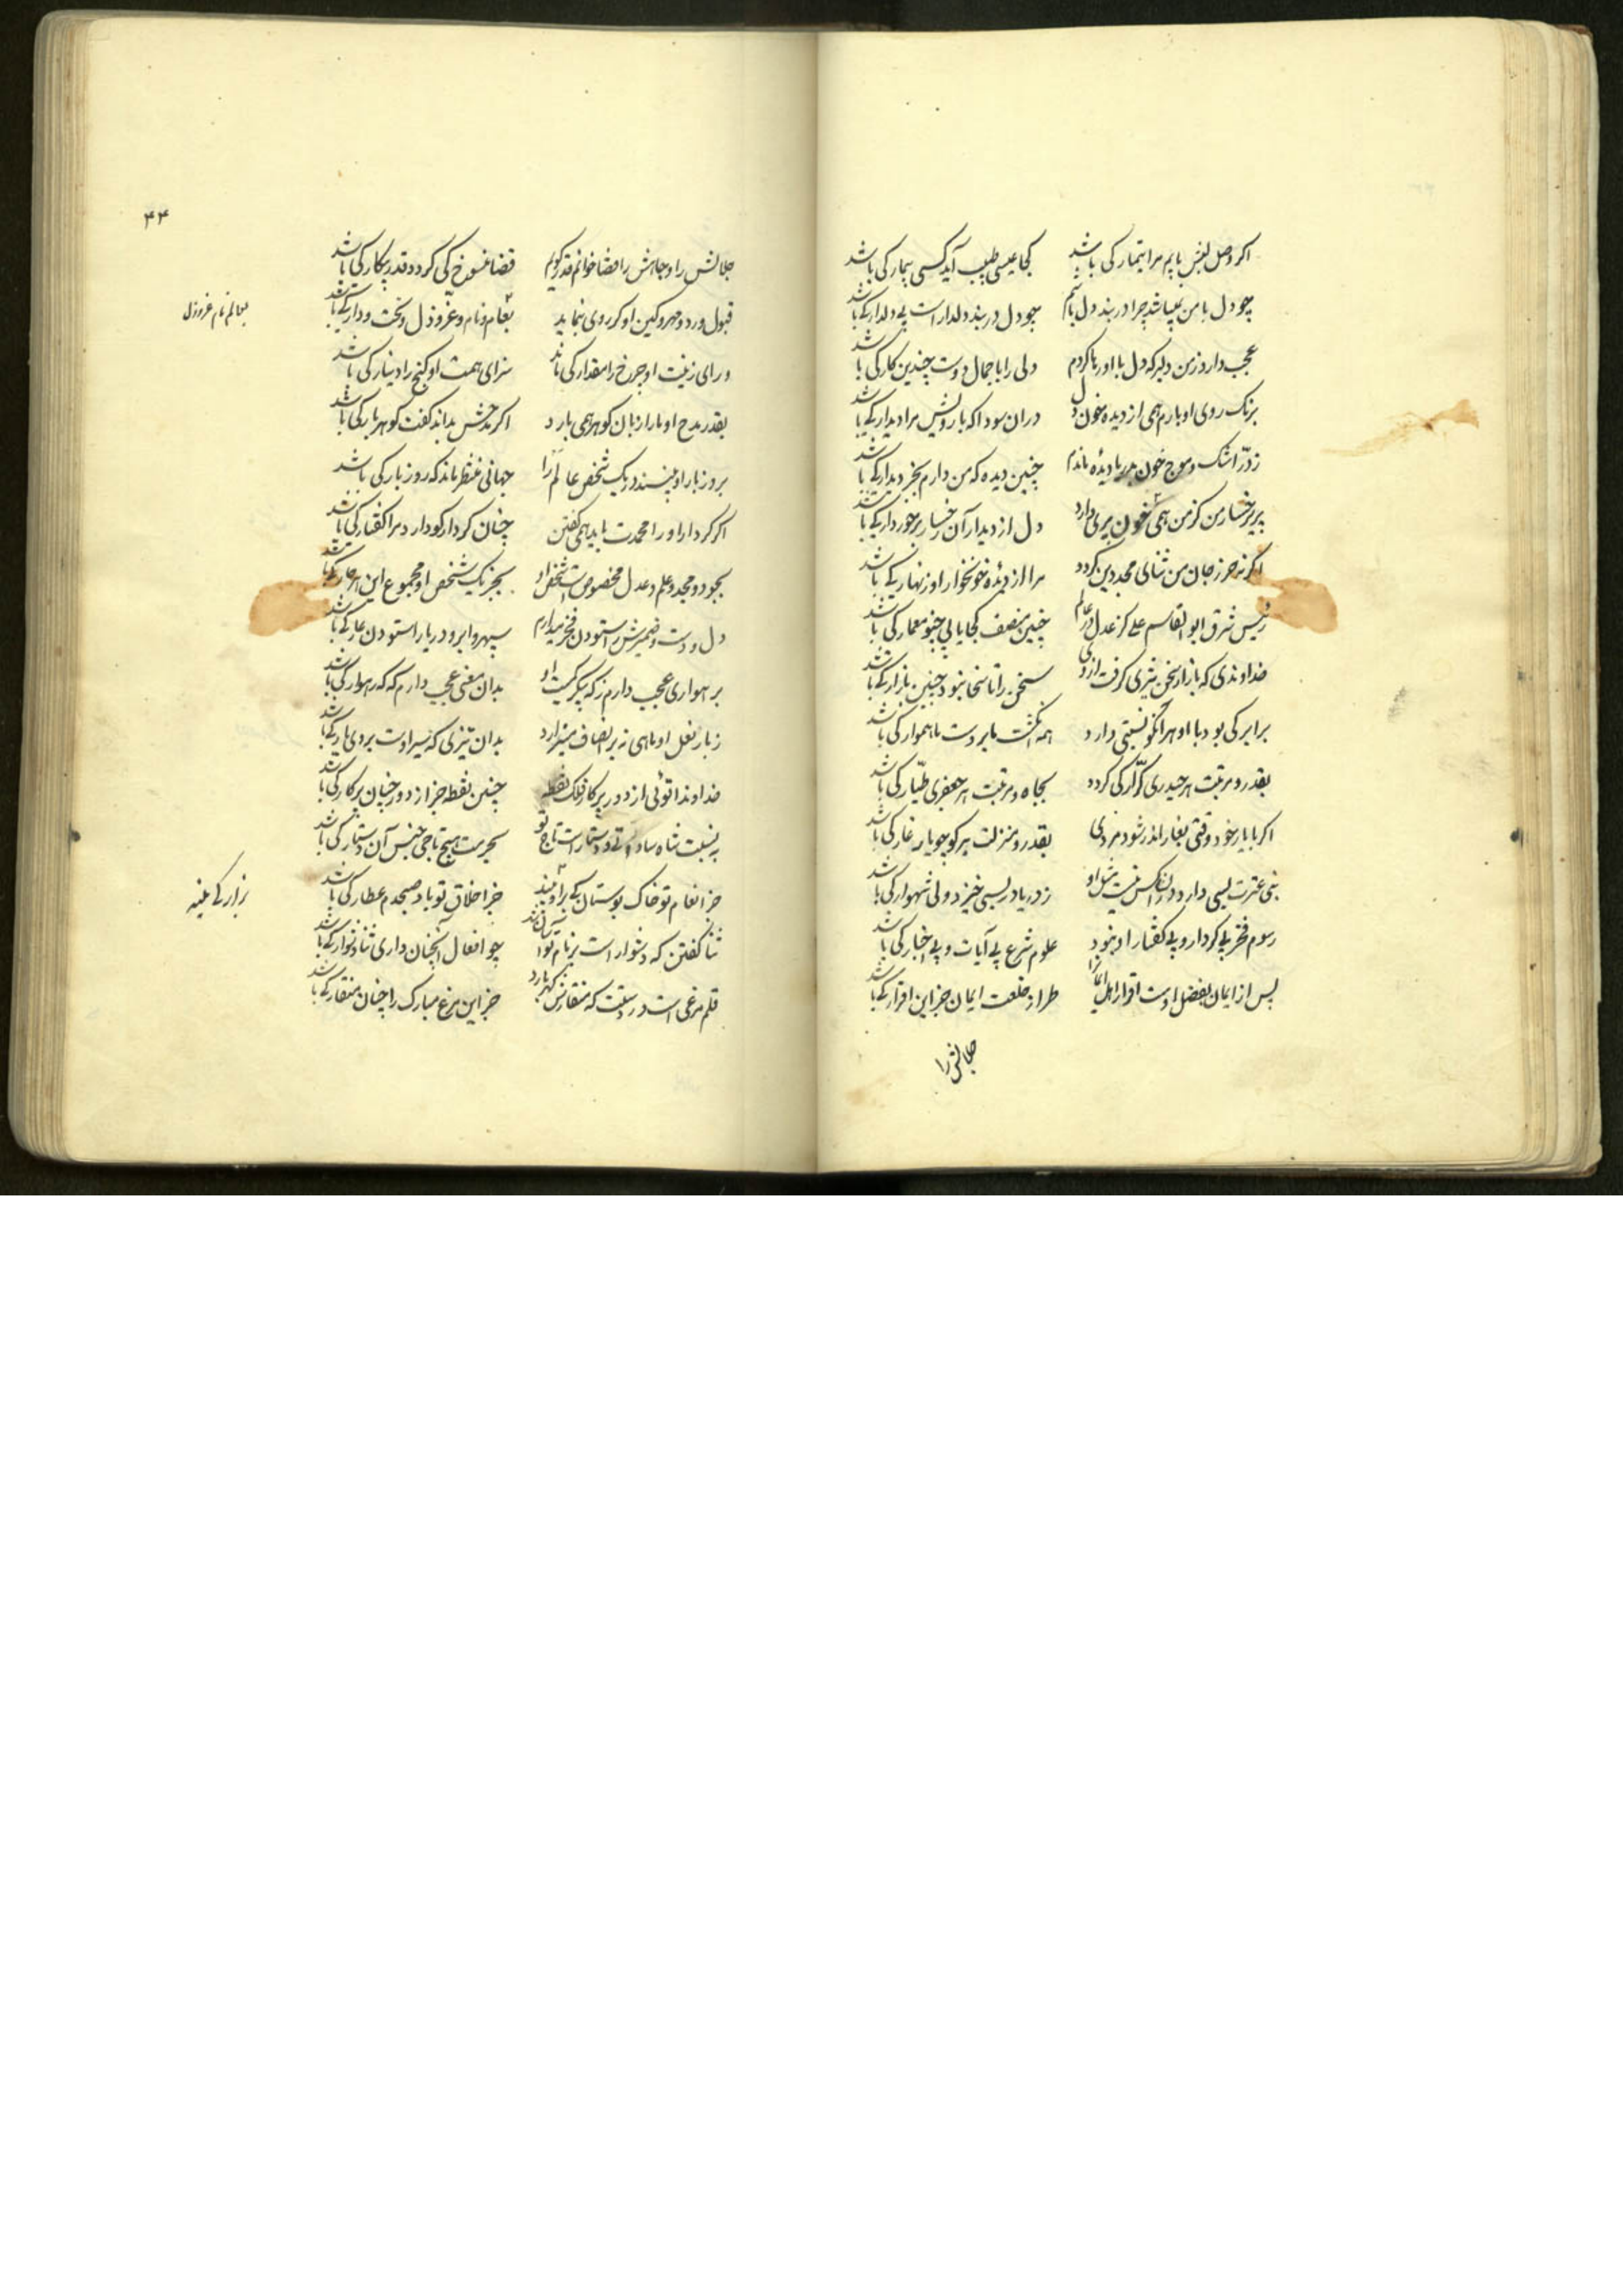 اکر وصل لبش یابم مرا تیمار کی باشد کجا عیسی طبیب آید کسی بیمار کی باشد
چو دل با من نمیباشد چرا در بند دل باشم چو دل در بند دلدار است بی دلدار کی باشد
عجب دارد ز من دلبر که دل با او رها کردم دلی را با جمال دوست چندین کار کی باشد
برنک روی او بارم همی از دیده خون دل در آن سودا که با رویش مرا دیدار کی باشد
ز درّ اشک و موج خون بدریا دیده ماندم چنین دیده که من دارم بجز دیدار کی باشد
پریرخسار من کز من همی خون پری دارد دل از دیدار آن رخسار برخوردار کی باشد
اکر نه حرز جان من ثنای مجد دین کردد مرا از دیده خونخوار او زنهار کی باشد
رئیس شرق ابوالقاسم علی کز عدل در عالم چنین منصف کجا یابی چنو معمار کی باشد
خداوندی که بازار سخن تیزی کرفت از وی سخن را تا سخا نبود چنین بازار کی باشد
برابر کی بود با او هر آنکو نسبتی دارد همه انکشت ما بر دست ما هموار کی باشد
بقدر و مرتبت هر حیدری کرّار کی کردد بجاه و مرتبت هر جعفری طیّار کی باشد
اکر با یار خود وقتی بغار اندر شود مردی بقدر و منزلت هرکو چو یار غار کی باشد
نبی عترت بسی دارد ولیکن کس نیست مثل او ز دریا در بسی خیزد ولی شهوار کی باشد
رسوم فخر بی کردار و بی کفتار او نبود علوم شرع بی آیات و بی اخبار کی باشد
پس از ایمان بفضل اوست اقرار اهل ایمانرا طراز خلعت ایمان جز این اقرار کی باشد
جلالش را
۴۴
جلالش را و جاهش را قضا خوانم قدر کویم قضا منسوخ کی کردد قدر بیکار کی باشد
قبول و رد و مهر و کین او کر روی ننماید بعالم نام و عز و ذل و تخت و دار کی باشد
بعالم نام عز و ذل
ورای زینت او چرخ را مقدار کی ماند سزای همت او کنج را دینار کی باشد
بقدر مدح او ما را زبان کوهر همی بارد اکر مدحش نداند کفت کوهربار کی باشد
بروز بار او بینند در یک شخص عالم را جهانی منتظر ماند که روز بار کی باشد
اکر کردار او را محمدت باید همی کفتن چنان کردار کو دارد مرا کفتار کی باشد
بجود و مجد و علم و عدل مخصوص است شخص او بجز یک شخص او مجموع این هر چار کی باشد
دل و دست و ضمیرش را ستودن فخر میدارم سپهر و ابر و دریا را ستودن عار کی باشد
برهواری عجب دارم ز که پیکر کمیت او بدان معنی عجب دارم که که رهوار کی باشد
ز بار نعل او ماهی نه بر انصاف میزارد بدان تیزی که سیر اوست بر وی بار کی باشد
خداوندا توئی از دور پرکار فلک نقطه چنین نقطه جز از دور چنان پرکار کی باشد
به نسبت شاه ساداتی و دستار است تاج تو بحرمت هیچ تاجی جنس آن دستار کی باشد
جز انعام تو خاک بوستان کی جز اخلاق تو باد صبحدم عطار کی باشد
ثنا کفتن که دشوار است بر نام تو آسان شد چو افعال آنچنان داری ثنا دشوار کی باشد
قلم مرغی است در دستت که منقارش کهر بارد جز این مرغ مبارک را چنان منقار کی باشد